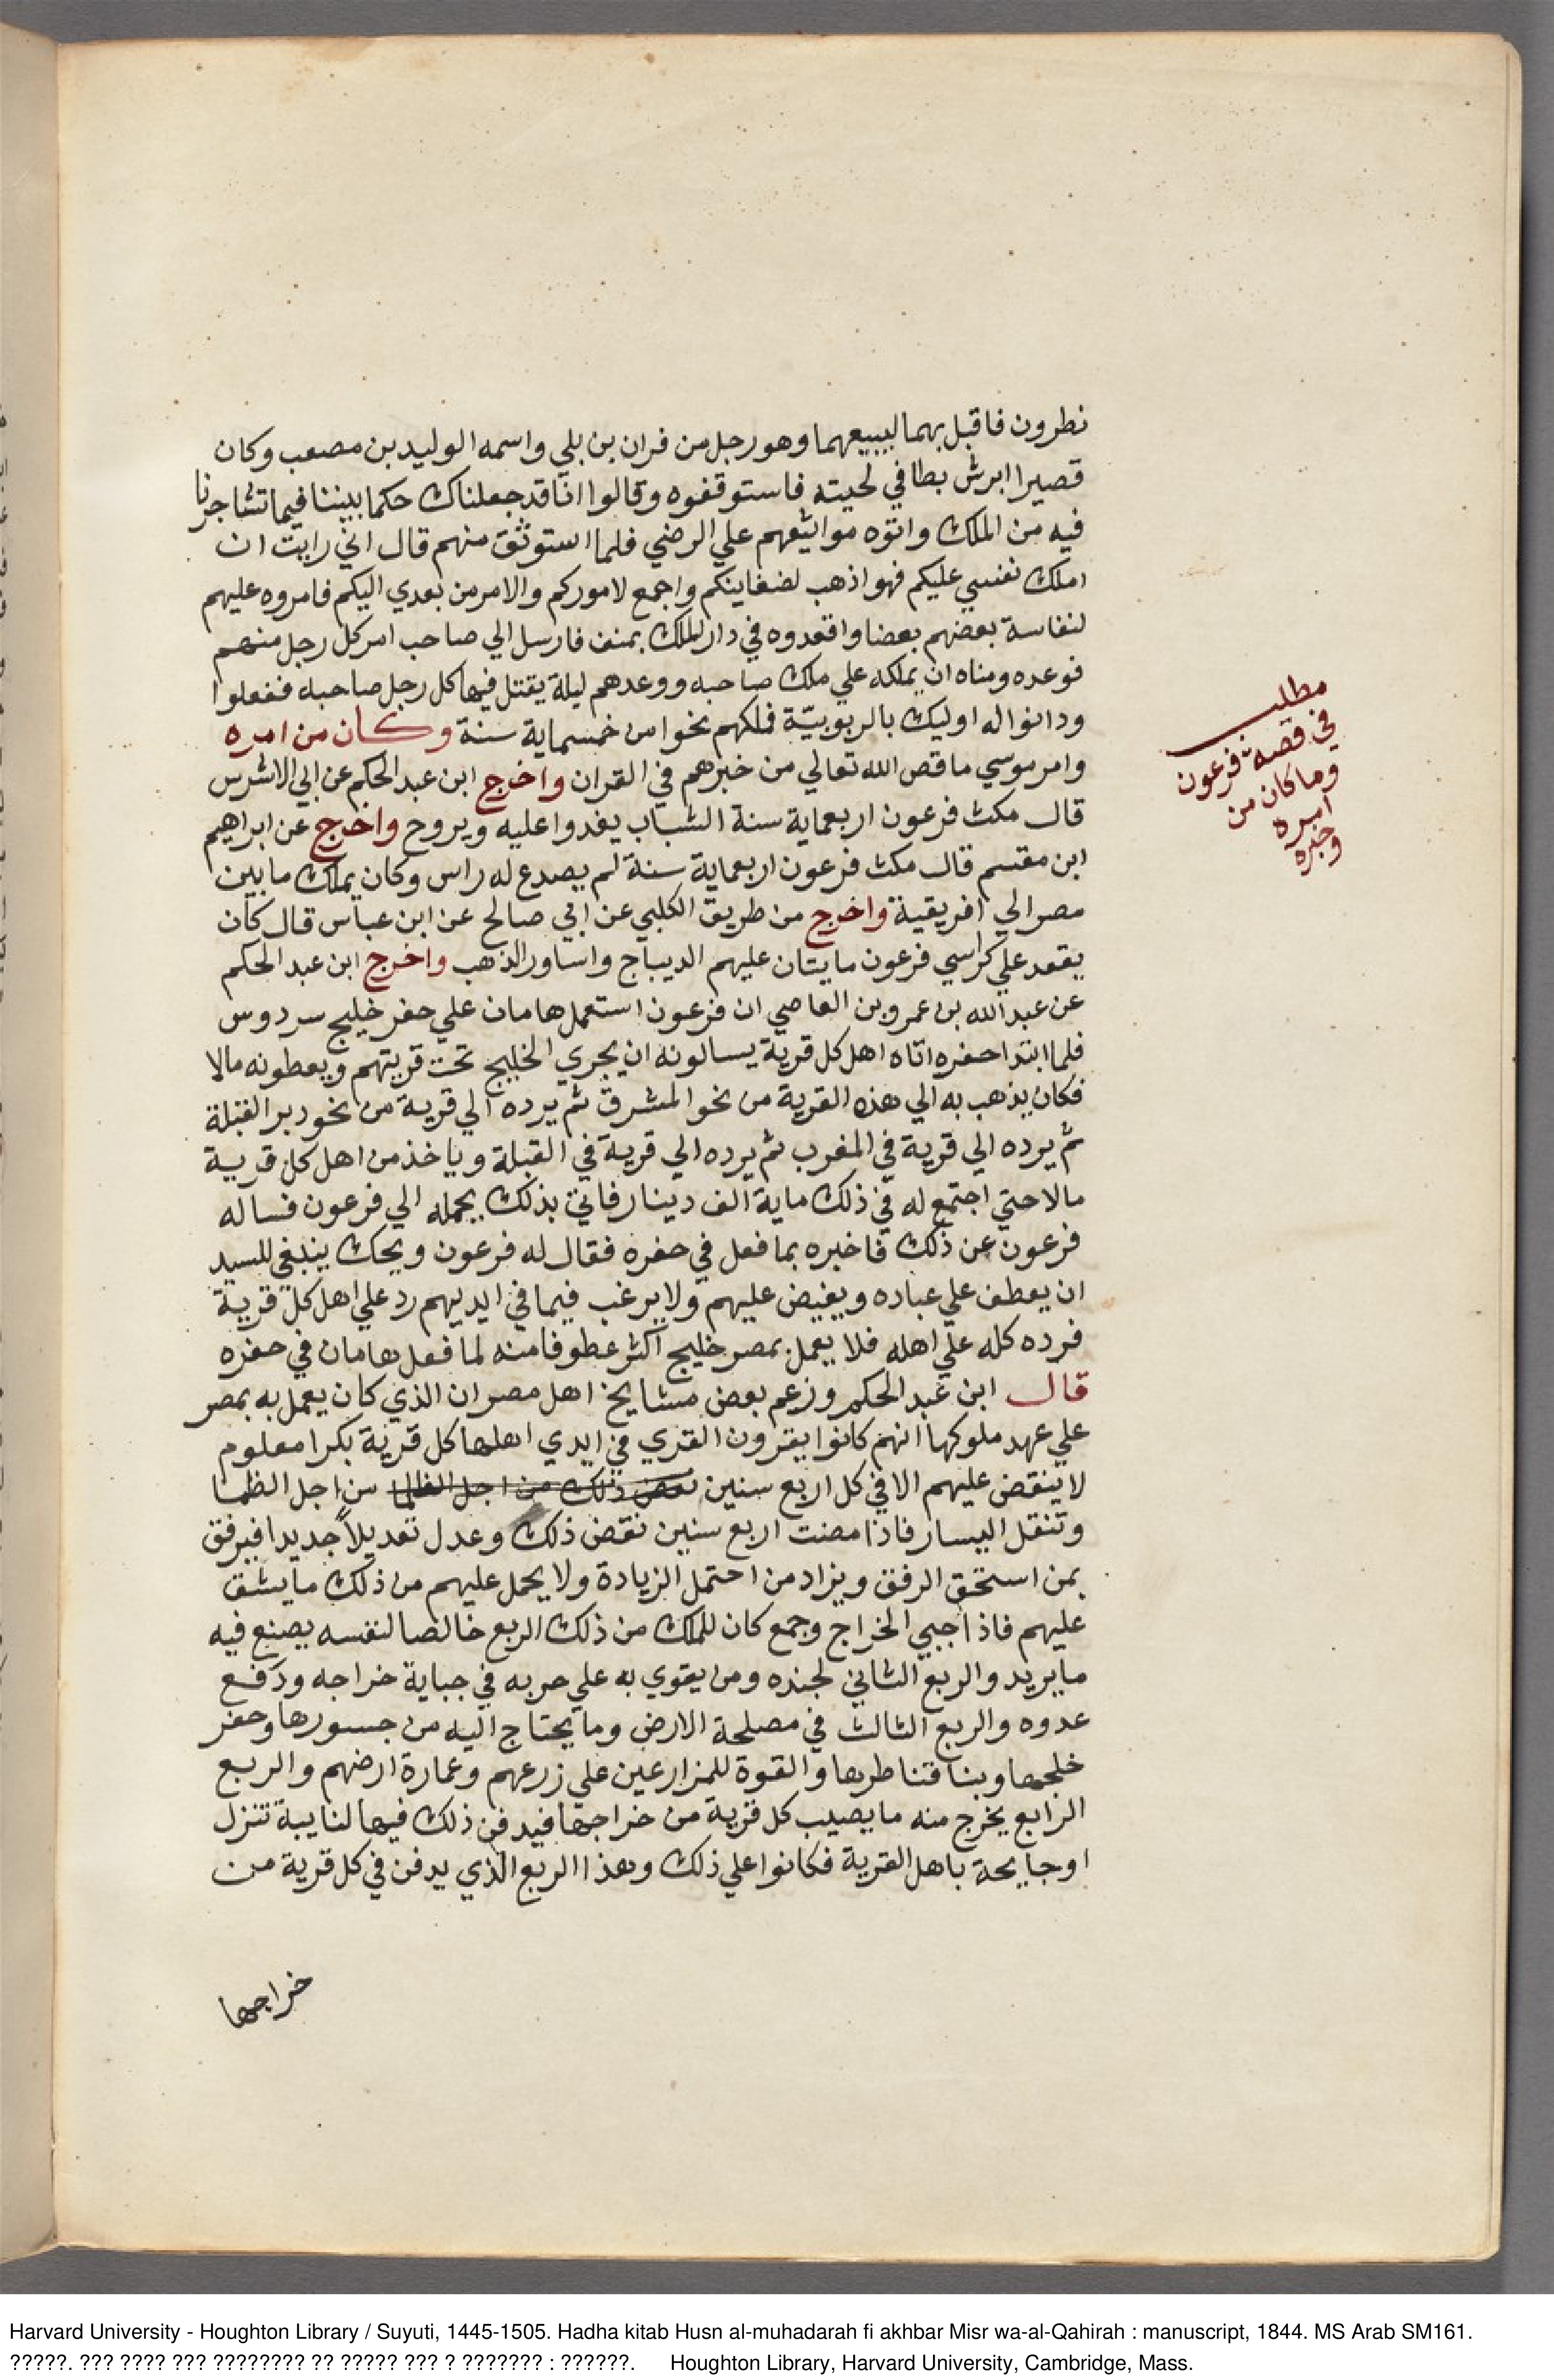 نطرون فاقبل بهما ليبيعهما وهو رجل من فران بن بلي واسمه الوليد بن مصعب وكان
قصيرا ابرش بطا في لحيته فاستوقفوه وقالوا انا قد جعلناك حكما بيننا فيما تشاجرنا
فيه من الملك واتوه مواثيقهم علي الرضي فلما استوثق منهم قال اني رايت ان
املك نفسي عليكم فهو اذهب لضغاينكم واجمع لاموركم والامر من بعدي اليكم فامروه عليهم
لنفاسة بعضهم بعضا واقعدوه في دار الملك بمنف فارسل الي صاحب امر كل رجل منهم
فوعده ومناه ان يملكه علي ملك صاحبه ووعدهم ليلة يقتل فيها كل رجل صاحبه ففعلوا
ودانوا له اوليك بالربوبيّة فملكهم نحوا من خمسماية سنة وكان من امره
وامر موسي ما قص الله تعالي من خبرهم في القران واخرج ابن عبد الحكم عن ابي الاشرس
قال مكث فرعون اربعماية سنة الشباب يغدوا عليه ويروح واخرج عن ابراهيم
ابن مقسم قال مكث فرعون اربعماية سنة لم يصدع له راس وكان يملك ما بين
مصر الي افريقية واخرج من طريق الكلبي عن ابي صالح عن ابن عباس قال كان
يقعد علي كراسي فرعون مايتان عليهم الديباج واساور الذهب واخرج ابن عبد الحكم
عن عبد الله بن عمرو بن العاصي ان فرعون استعمل هامان علي حفر خليج سردوس
فلما ابتدا حفره اتاه اهل كل قرية يسالونه ان يجري الخليج تحت قريتهم ويعطونه مالا
فكان يذهب به الي هذه القرية من نحو المشرق ثم يرده الي قرية من نحو دبر القبلة
ثم يرده الي قرية في المغرب ثم يرده الي قرية في القبلة وياخذ من اهل كل قرية
مالا حتي اجتمع له في ذلك ماية الف دينار فاتي بذلك يحمله الي فرعون فساله
فرعون عن ذلك فاخبره بما فعل في حفره فقال له فرعون ويحك ينبغي للسيد
ان يعطف علي عباده ويفيض عليهم ولا يرغب فيما في ايديهم رد علي اهل كل قرية
فرده كله علي اهله فلا يعمل بمصر خليج اكثر عطوفا منه لما فعل هامان في حفره
قال ابن عبد الحكم وزعم بعض مشايخ اهل مصر ان الذي كان يعمل به بمصر
علي عهد ملوكها انهم كانوا يقرون القري في ايدي اهلها كل قرية بكرا معلوم
لا ينقض عليهم الا في كل اربع سنين نعض ذلك من اجل الظما من اجل الظما
وتنقل اليسار فاذا مضت اربع سنين نقض ذلك وعدل تعديلاً جديدا فيرفق
بمن استحق الرفق ويزاد من احتمل الزيادة ولا يحمل عليهم من ذلك ما يشق
عليهم فاذا جبي الخراج وجمع كان للملك من ذلك الربع خالصا لنفسه يصنع فيه
ما يريد والربع الثاني لجنده ومن يقوي به علي حربه في جباية خراجه ودفع
عدوه والربع الثالث في مصلحة الارض وما يحتاج اليه من جسورها وحفر
خلجها وبنا قناطرها والقوة للمزارعين علي زرعهم وعمارة ارضهم والربع
الرابع يخرج منه ما يصيب كل قرية من خراجها فيدفن ذلك فيها لنايبة تنزل
او جايحة باهل القرية فكانوا علي ذلك وهذا الربع الذي يدفن في كل قرية من
خراجها
مطلب
في قصة فرعون
وما كان من
امره
وخبره
Harvard University - Houghton Library / Suyuti, 1445-1505. Hadha kitab Husn al-muhadarah fi akhbar Misr wa-al-Qahirah : manuscript, 1844. MS Arab SM161.
?????. ??? ???? ??? ???????? ?? ????? ??? ? ??????? : ??????. Houghton Library, Harvard University, Cambridge, Mass.